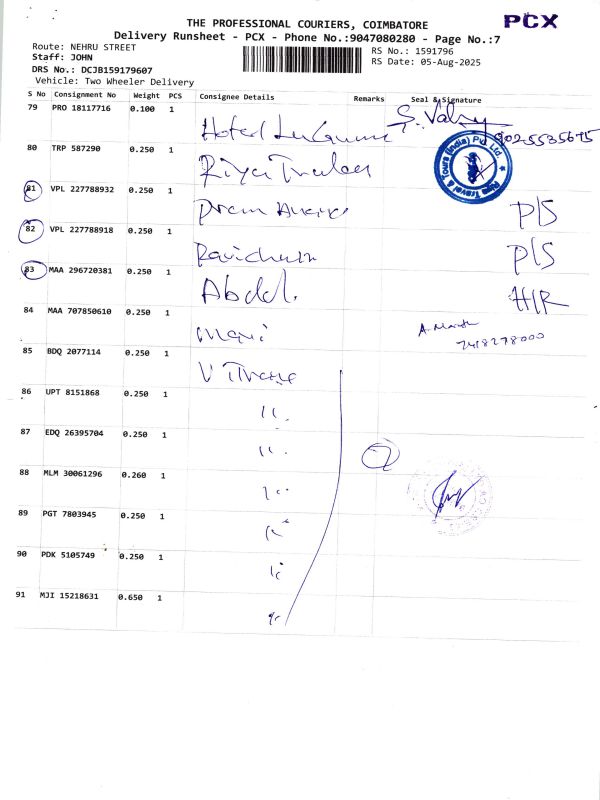 THE PROFESSIONAL COURIERS, COIMBATORE
PCX
Delivery Runsheet - PCX - Phone No.:9047080280 - Page No.:7
Route: NEHRU STREET
RS No.: 1591796
Staff: JOHN
RS Date: 05-Aug-2025
DRS No.: DCJB159179607
Vehicle: Two Wheeler Delivery
S No Consignment No Weight PCS Consignee Details Remarks Seal & Signature
79 PRO 18117716 0.100 1 Hotel
80 TRP 587290 0.250 1 Riya
81 VPL 227788932 0.250 1 Prem P/S
82 VPL 227788918 0.250 1 P/S
83 MAA 296720381 0.250 1 Abdul. H/R
84 MAA 707850610 0.250 1 Mani
7418278000
85 BDQ 2077114 0.250 1 V
86 UPT 8151868 0.250 1 "
87 EDQ 26395704 0.250 1 " 7
88 MLM 30061296 0.260 1 "
89 PGT 7803945 0.250 1 "
90 PDK 5105749 0.250 1 "
91 MJI 15218631 0.650 1 "